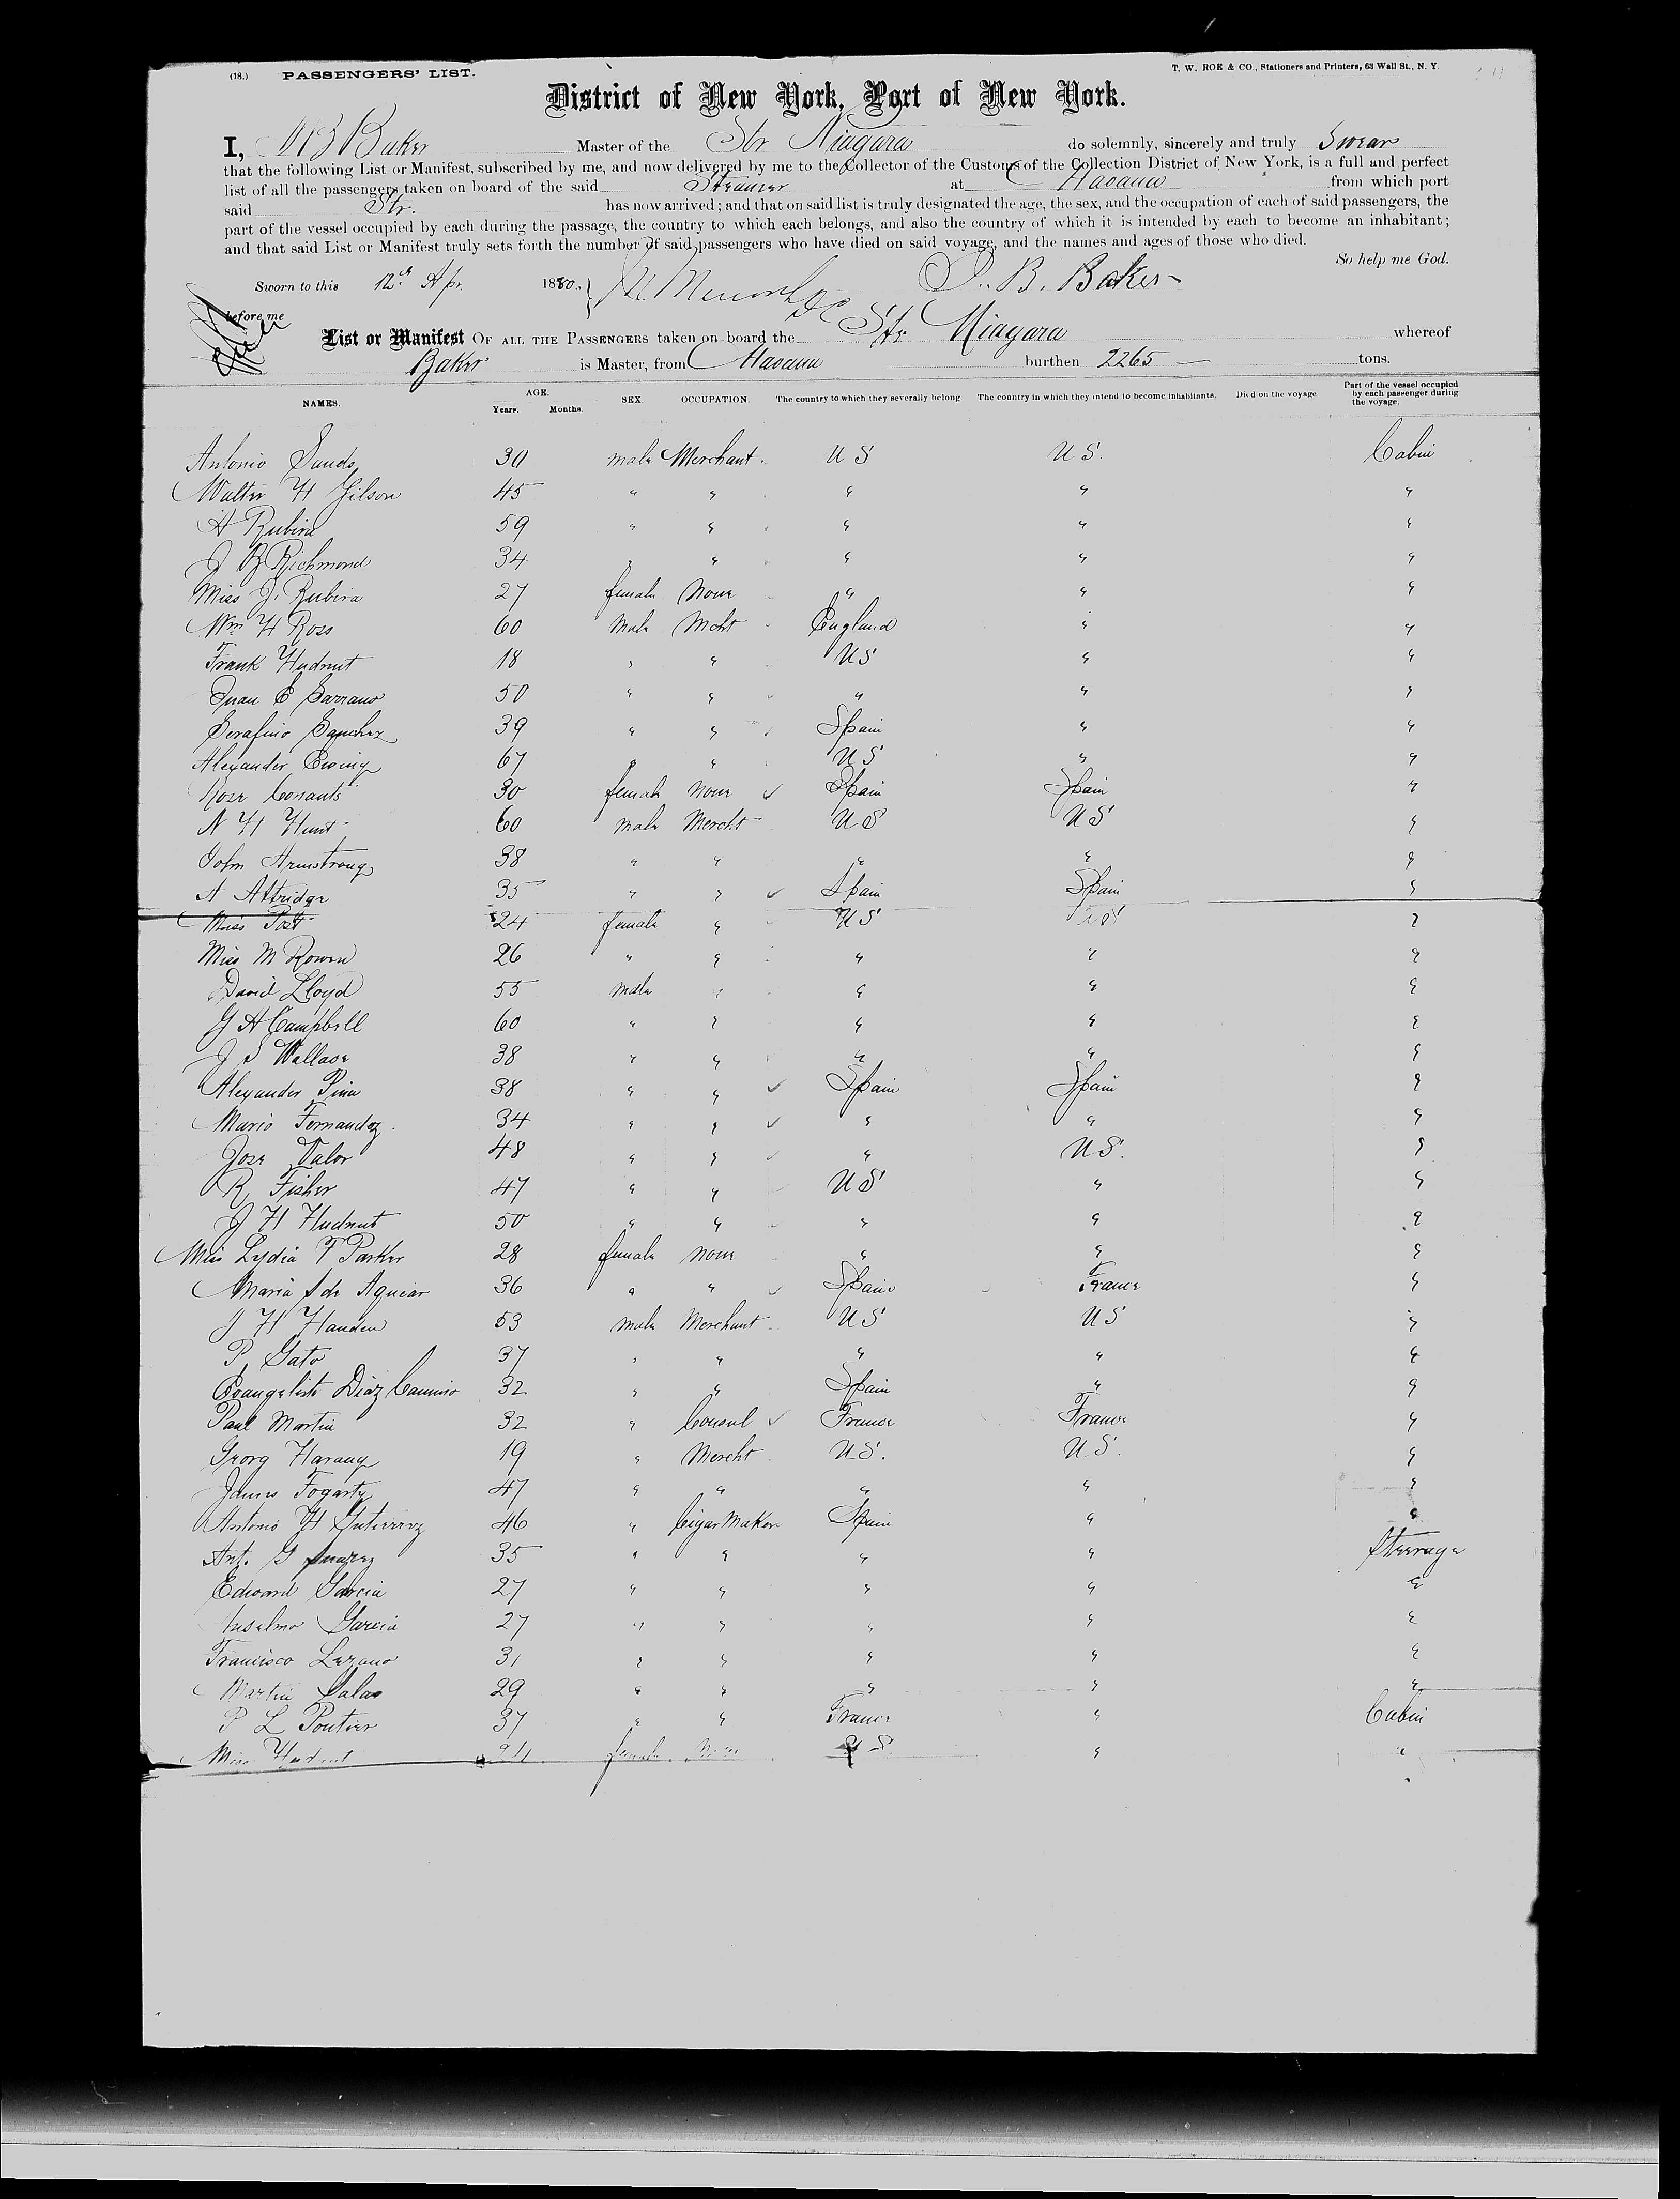 (18.) PASSENGERS' LIST. T. W. ROE & CO., Stationers and Printers, 63 Wall St., N. Y.
District of New York, Port of New York.
I, Baker Master of the Str Niagara do solemnly, sincerely and truly Swear
that the following List or Manifest, subscribed by me, and now delivered by me to the Collector of the Customs of the Collection District of New York, is a full and perfect
list of all the passengers taken on board of the said Steamer at Havana from which port
said Str. has now arrived; and that on said list is truly designated the age, the sex, and the occupation of each of said passengers, the
part of the vessel occupied by each during the passage, the country to which each belongs, and also the country of which it is intended by each to become an inhabitant;
and that said List or Manifest truly sets forth the number of said passengers who have died on said voyage, and the names and ages of those who died.
So help me God.
Sworn to this 12th Apr. 1880, B. Baker
before me
List or Manifest OF ALL THE PASSENGERS taken on board the Str Niagara whereof
Baker is Master, from Havana burthen 2265 — tons.
NAMES. AGE. Years. Months. SEX. OCCUPATION. The country to which they severally belong. The country in which they intend to become inhabitants. Died on the voyage. Part of the vessel occupied by each passenger during the voyage.
Antonio 30 male Merchant. U S U S. Cabin
Walter H Gilson 45 " " " " "
A Rubira 59 " " " " "
J B Richmond 34 " " " " "
Miss J. Rubira 27 female None " " "
Wm H Ross 60 Male Mcht England " "
Frank Hudnut 18 " " US " "
Juan E Serrano 50 " " " " "
Serafino Sanchez 39 " " Spain " "
Alexander Ewing 67 " " US " "
Rose Conants 30 female None ✓ Spain Spain "
N H Hunt 60 male Mercht US US "
John Armstrong 38 " " " " "
A Attridge 35 " " ✓ Spain Spain "
Miss Post 24 female " US US "
Miss M Rowen 26 " " " " "
David Lloyd 55 Male " " " "
G H Campbell 60 " " " " "
J S Wallace 38 " " " " "
Alexander Pina 38 " " ✓ Spain Spain "
Mario Fernandez. 34 " " ✓ " " "
Jose Valor 48 " " ✓ " US. "
R Fisher 47 " " US " "
J H Hudnut 50 " " " " "
Miss Lydia F Parker 28 female None " " "
Maria de Aguiar 36 " " ✓ Spain France "
J H Handen 53 male Merchant US US "
P Gato 37 " " " " "
Evangelista Diaz 32 " " Spain " "
Paul Martin 32 " Consul ✓ France France "
Georg Harang 19 " Mercht US. US. "
James Fogarty 47 " " " " "
Antonio H Gutierrez 46 " Cigar Maker Spain " "
Ant. G Suarez 35 " " " " Steerage
Edward Garcia 27 " " " " "
Anselmo Garcia 27 " " " " "
Francisco Lezano 31 " " " " "
Martin Salas 29 " " " " "
P L Poutier 37 " " France " Cabin
Miss Hudnut 24 female None U S. " "